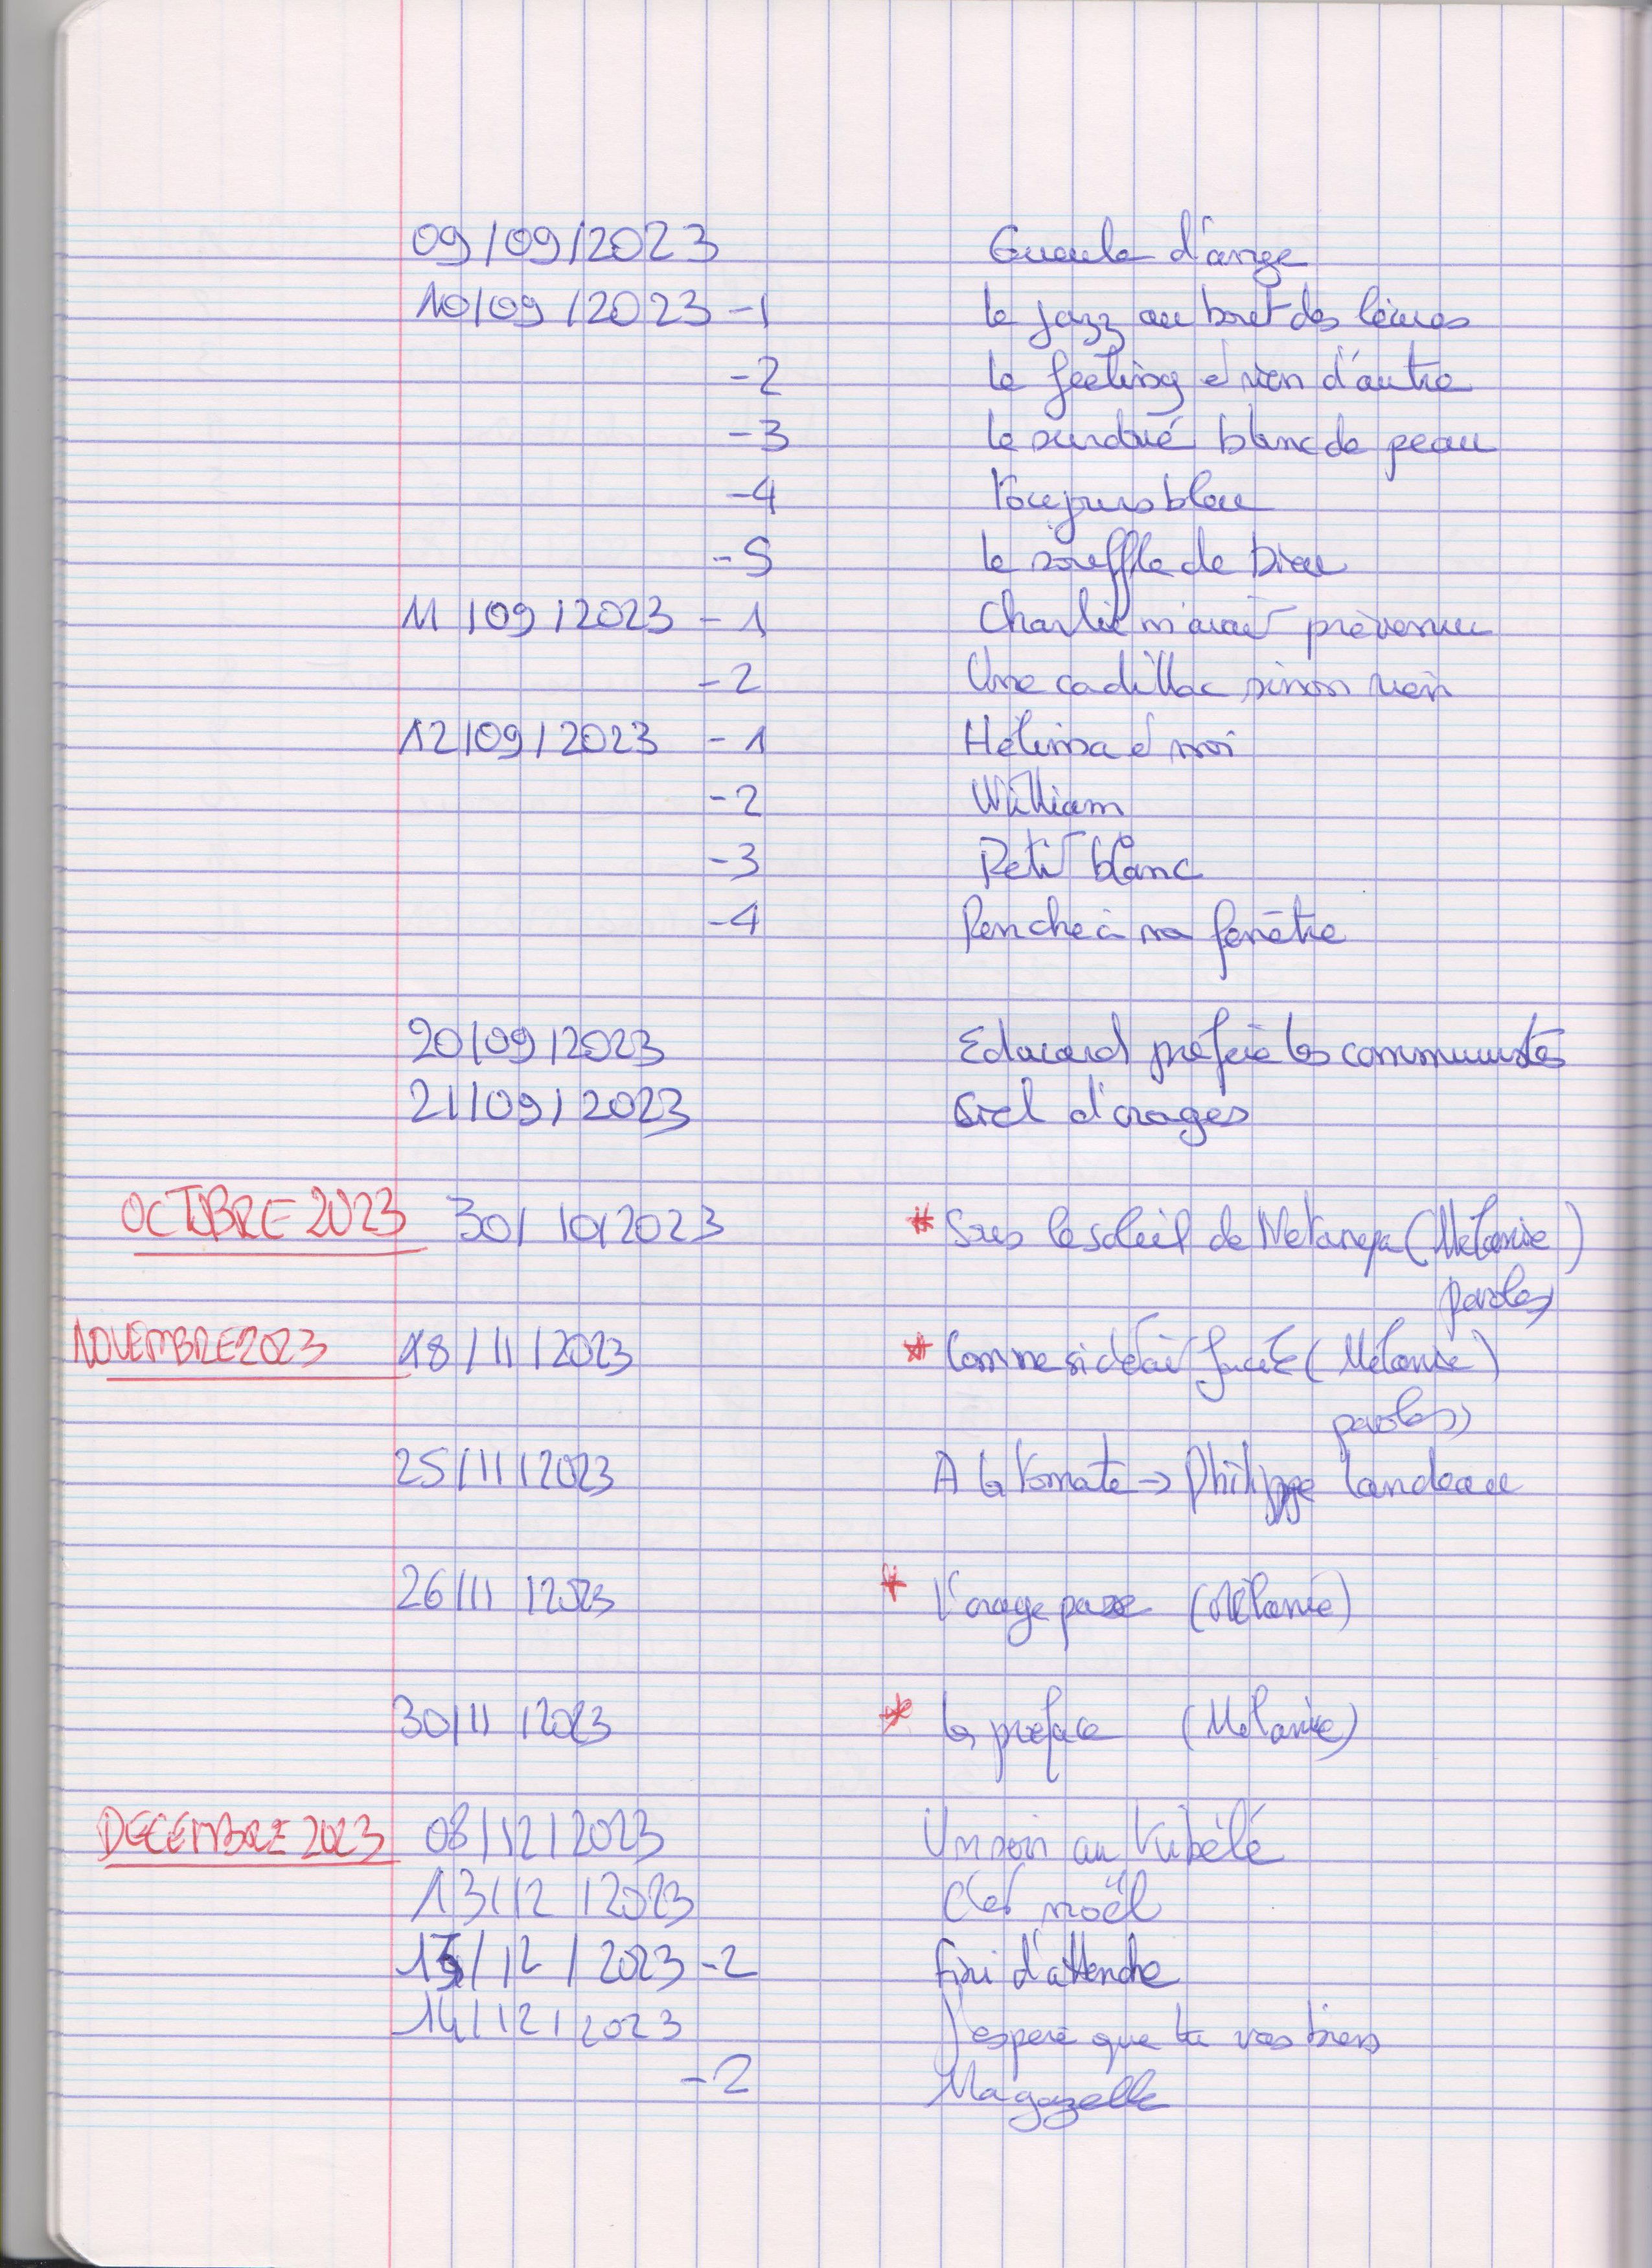 09/09/2023 Gueule d'ange
10/09/2023 -1 Le jazz au bout des lèvres
-2 Le feeling et rien d'autre
-3 Le surdoué blanc de peau
-4 Toujours bleu
-5 Le souffle de
11/09/2023 -1 Charlie m'avait prévenu
-2 Une cadillac sinon rien
12/09/2023 -1 et moi
-2 William
-3 Petit blanc
-4 Penché à ma fenêtre
20/09/2023 Edouard préfère les communistes
21/09/2023 Ciel d'orages
OCTOBRE 2023 30/10/2023 * Sous le soleil de (Mélanie)
paroles
NOVEMBRE 2023 18/11/2023 * Comme si c'était facile (Mélanie)
paroles
25/11/2023 A la tomate → Philippe Landeau
26/11/2023 * L'orage passe (Mélanie)
30/11/2023 * La préface (Mélanie)
DECEMBRE 2023 08/12/2023 Un soir au
13/12/2023 C'est noël
/12/2023 -2 Fini d'attendre
14/12/2023 J'espère que tu vas bien
-2 Ma gazelle